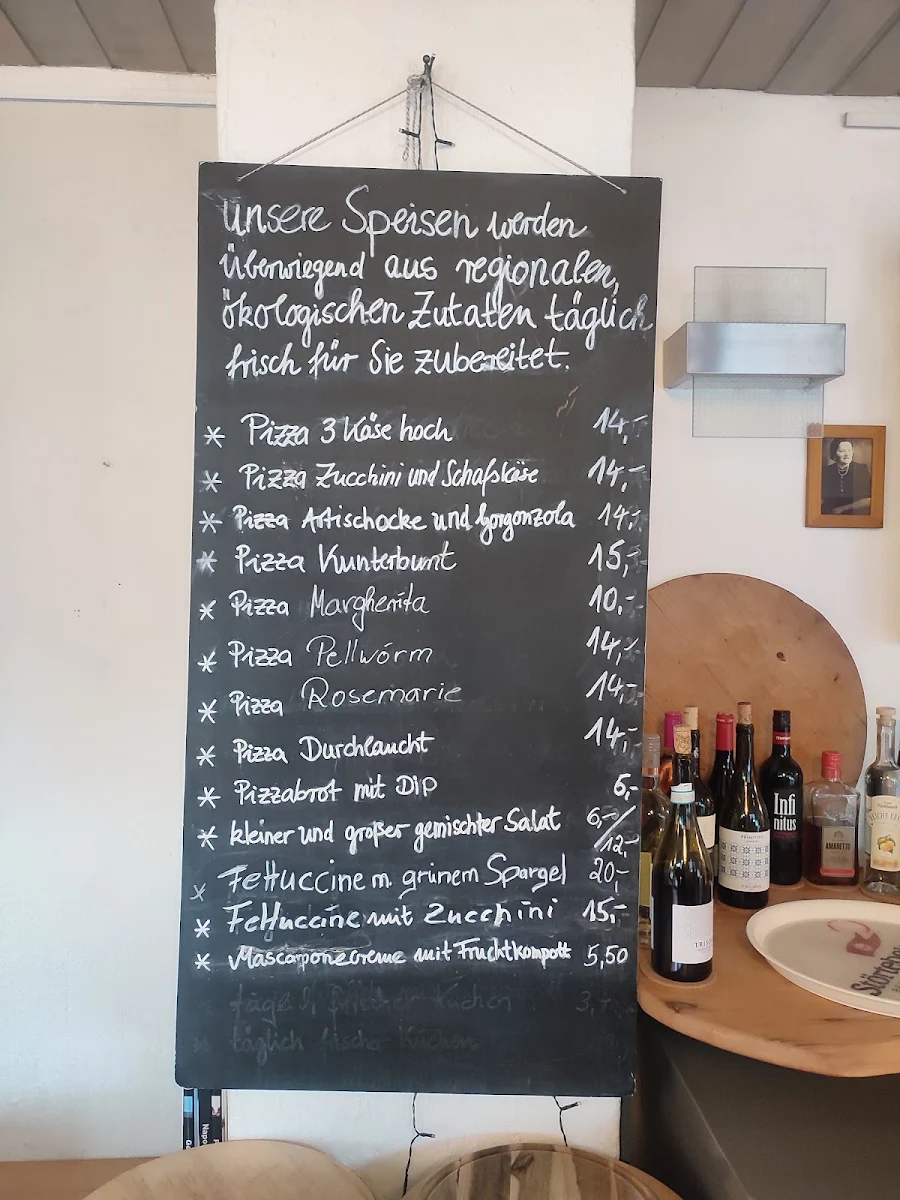 unsere Speisen werden
überwiegend aus regionalen,
ökologischen Zutaten täglich
frisch für Sie zubereitet.
* Pizza 3 Käse hoch 14,-
* Pizza Zucchini und Schafskäse 14,-
* Pizza Artischocke und Gorgonzola 14,-
* Pizza Kunterbunt 15,-
* Pizza Margherita 10.-
* Pizza Pellworm 14,-
* Pizza Rosemarie 14,-
* Pizza Durchlaucht 14,-
* Pizzabrot mit Dip 6,-
* kleiner und großer gemischter Salat 6,-/12,-
* Fettuccine m. grünem Spargel 20,-
* Fettuccine mit Zucchini 15,-
* Mascarponecreme mit Fruchtkompott 5,50
täglich frischer Kuchen 3,
* täglich frischer Kuchen
Infi
nitus
AMARETTO
Störtebe
Napo